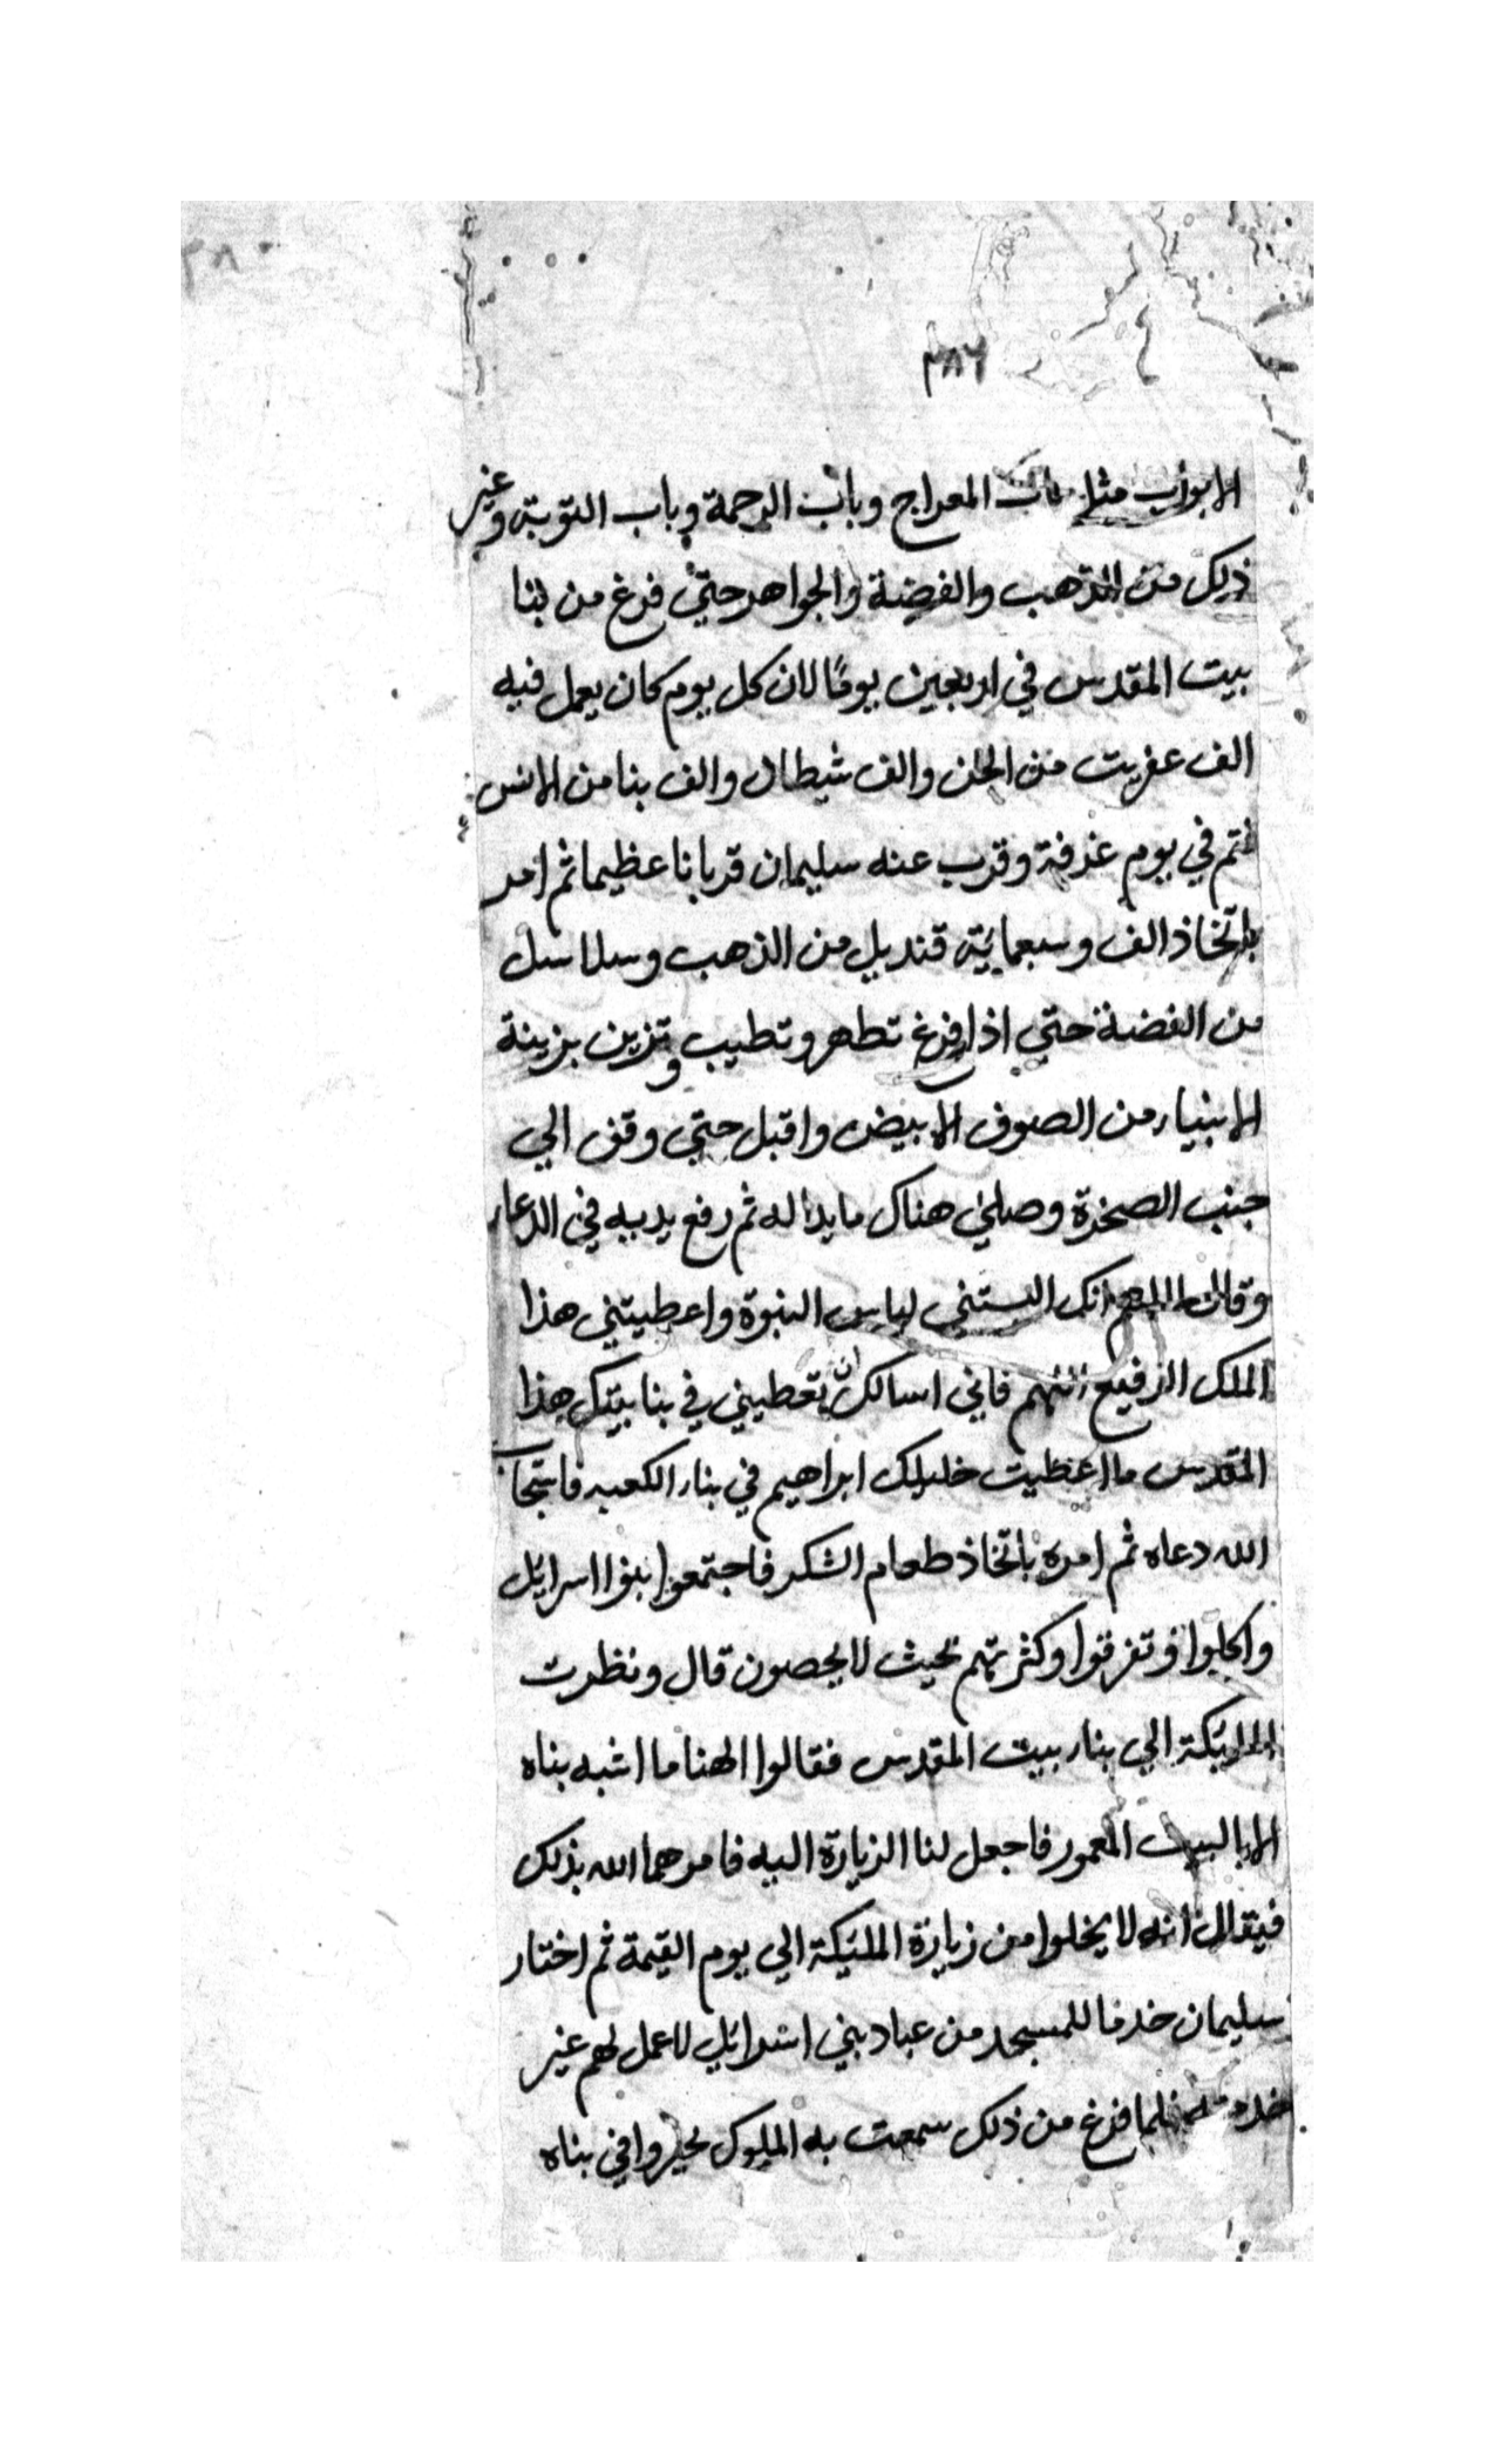 ٣٨٦
الابواب مثل باب المعراج وباب الرحمة وباب التوبة وغير
ذلك من الذهب والفضة والجواهر حتي فرغ من بنا
بيت المقدس في اربعين يومًا لان كل يوم كان يعمل فيه
الف عفريت من الجن والف شيطان والف بنا من الانس
فتم في يوم عرفة وقرب عنه سليمان قربانا عظيما ثم امر
باتخاذ الف وسبعمائة قنديل من الذهب وسلاسل
من الفضة حتي اذا فرغ تطهر وتطيب وتزين بزينة
الانبياء من الصوف الابيض واقبل حتي وقف الي
جنب الصخرة وصلي هناك ما بدا له ثم رفع يديه في الدعاء
وقال اللهم انك البستني لباس النبوة واعطيتني هذا
الملك الرفيع اللهم فاني اسالك ان تعطيني في بنا بيتك هذا
المقدس ما اعطيت خليلك ابراهيم في بناء الكعبه فاستجاب
الله دعاه ثم امره باتخاذ طعام الشكر فاجتمعوا بنوا اسرائل
واكلوا وتفرقوا وكثرتهم بحيث لا يحصون قال ونظرت
الملائكة الي بناء بيت المقدس فقالوا الهنا ما اشبه بناه
الا بالبيت المعمور فاجعل لنا الزيارة اليه فامرهما الله بذلك
فيقال انه لا يخلوا من زيارة الملئكة الي يوم القيمة ثم اختار
سليمان خدما للمسجد من عباد بني اسرائل لا عمل لهم غير
خدمته فلما فرغ من ذلك سمعت به الملوك تحيروا في بناه